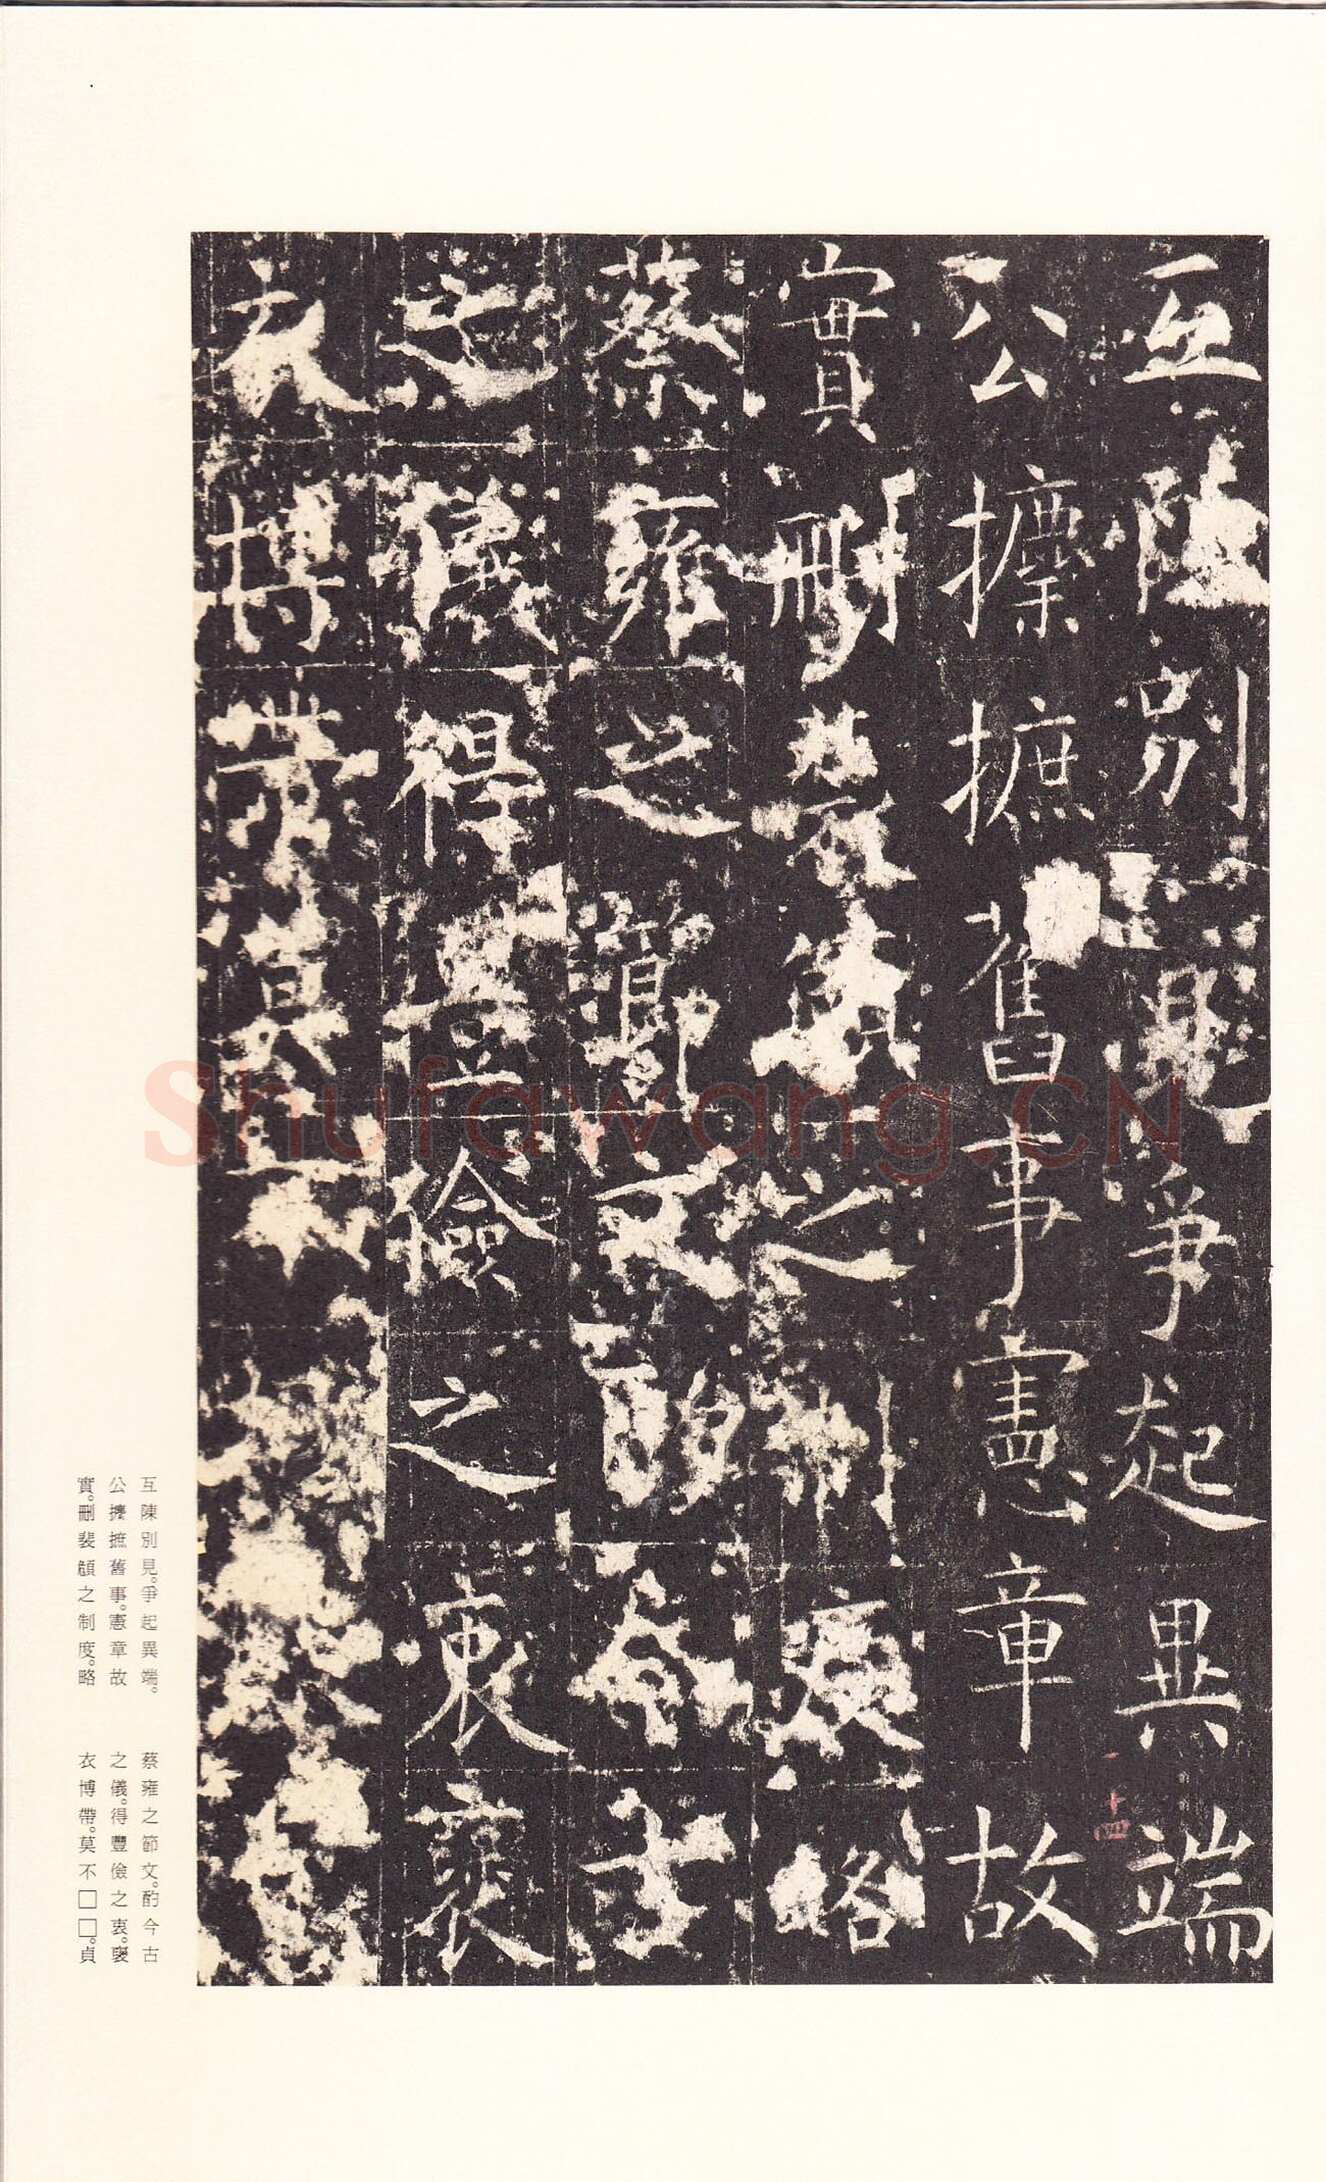 互陳別見爭起異端
公㩜摭舊事憲章故
實刪裴頠之制度略
蔡雍之節文酌今古
之儀得豐儉之衷褒
衣博帶莫不
十四
互陳別見。爭起異端。
公㩜摭舊事。憲章故
實。刪裴頠之制度。略
蔡雍之節文。酌今古
之儀。得豐儉之衷。褒
衣博帶。莫不□□。貞
Shufawang.CN